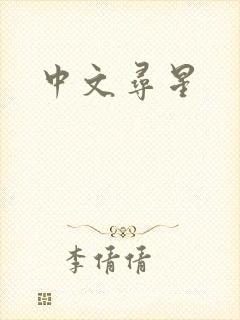 中文寻星
李倩倩